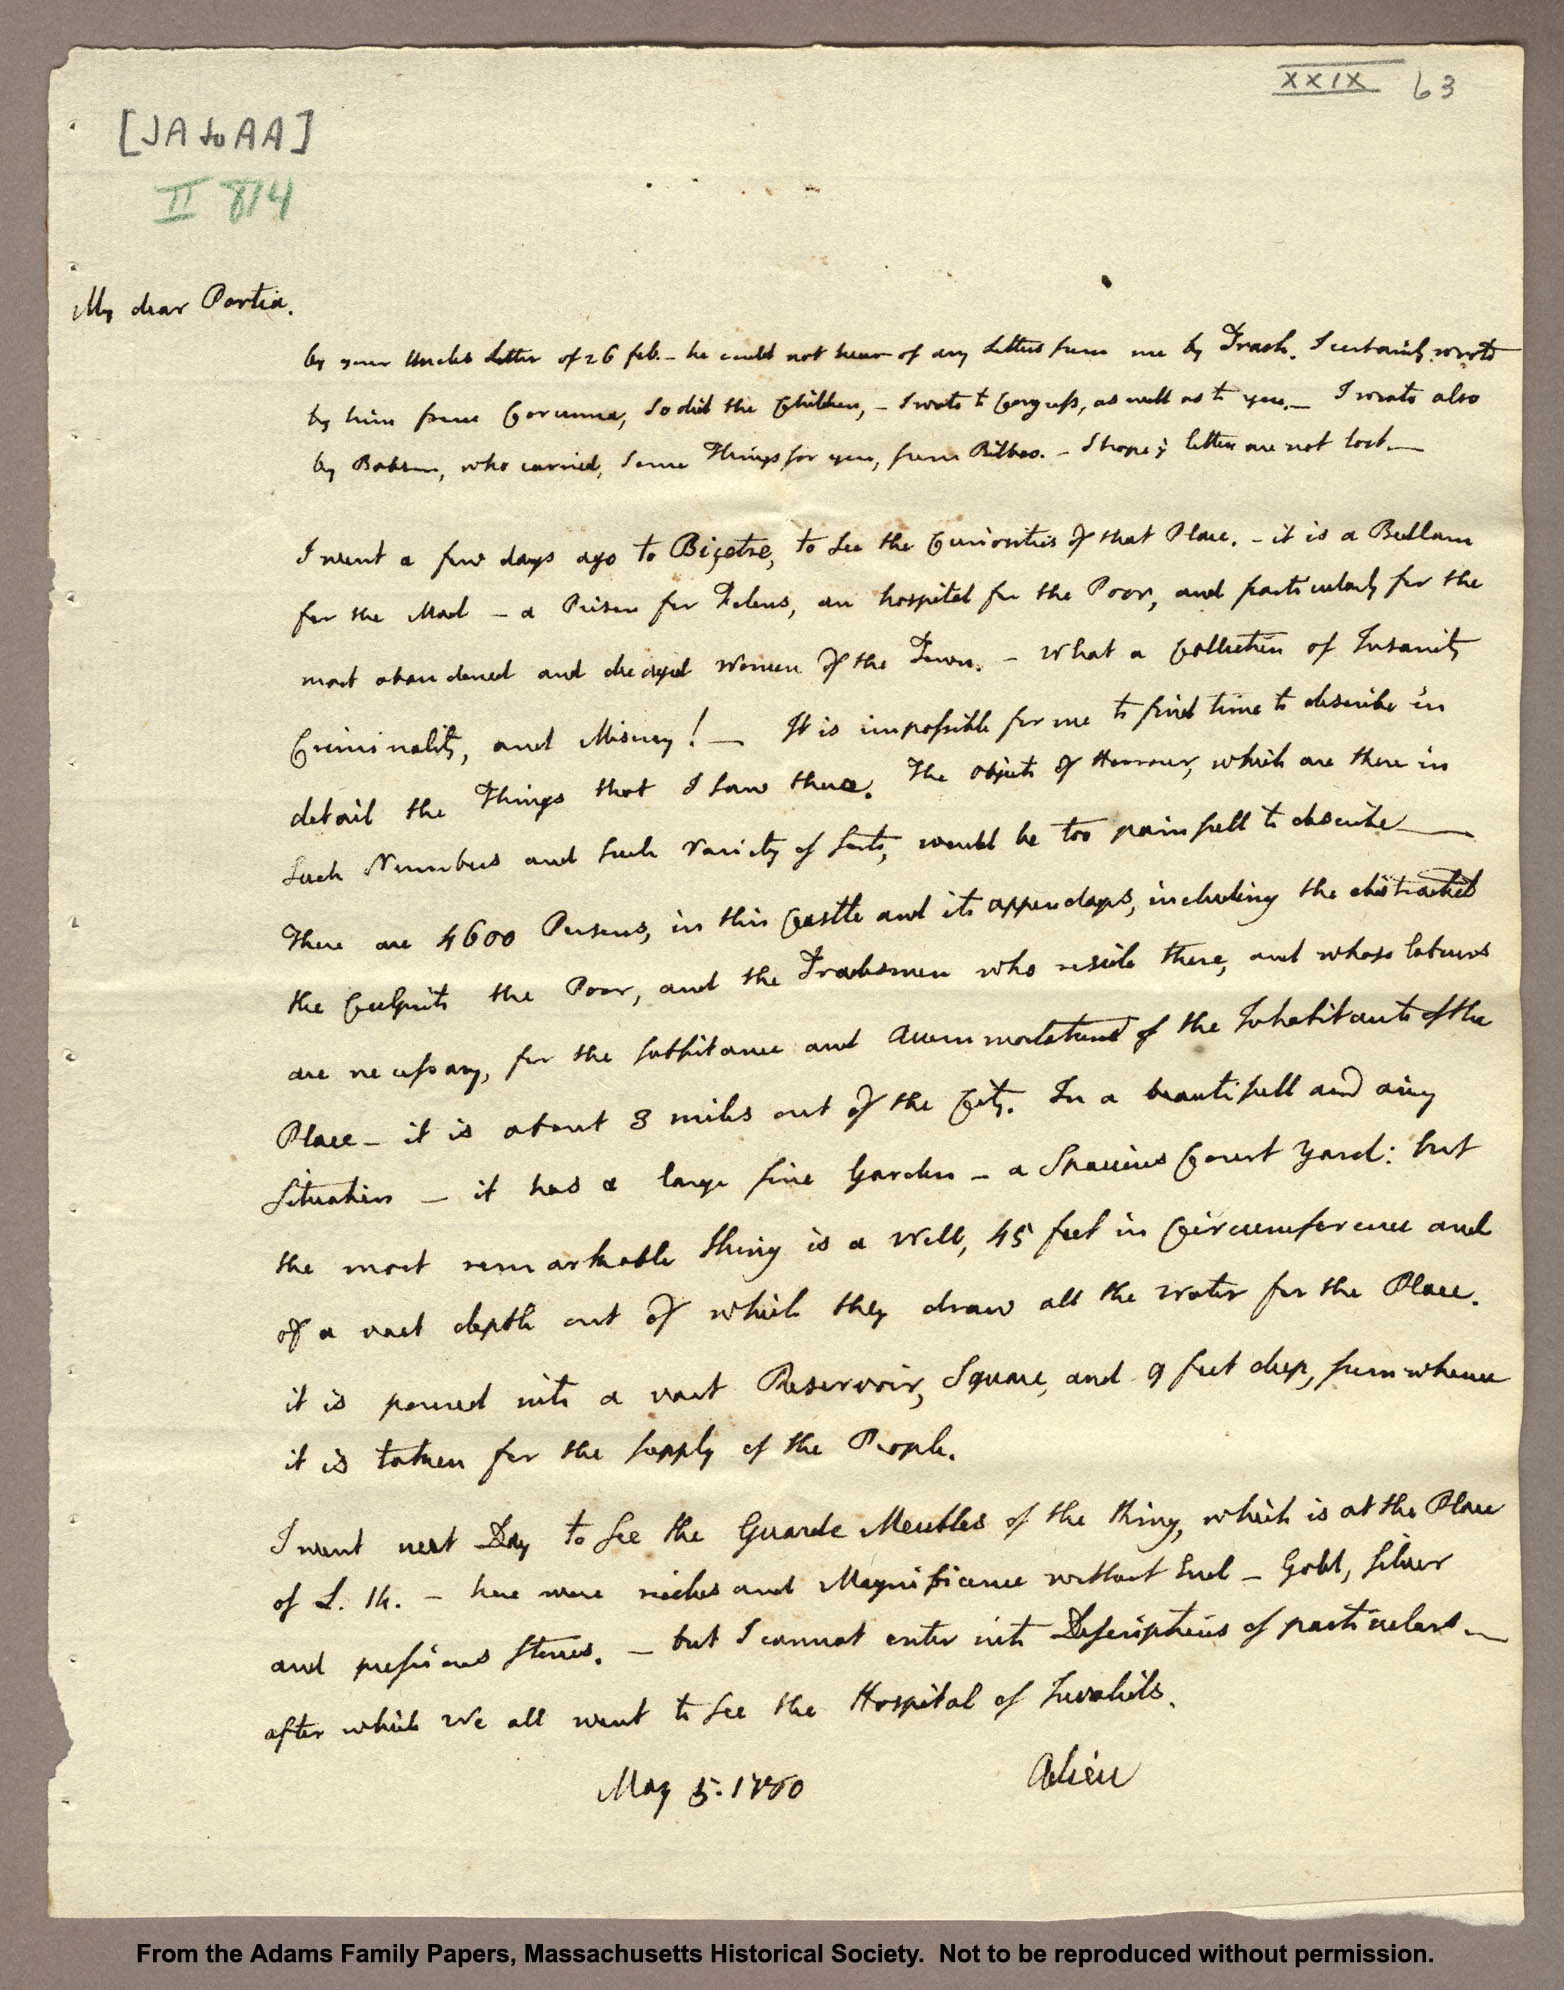 XXIX 63
[JA to AA]
II 814
My dear Portia.
by your Uncles Letter of 26 feb. – he could not hear of any Letters from me by Trash. I certainly wrote
by him from Corunna, So did the Children, – I wrote to Congress, as well as to you. – I wrote also
by Babson, who carried, Some Things for you, from Bilbao. – I hope ye letters are not lost. —
I went a few days ago to Biçetre, to See the Curiosities of that Place. – it is a Bedlam
for the Mad – a Prison for Felons, an hospital for the Poor, and particularly for the
most abandoned and decayed Women of the Town. – What a Collection of Insanity
Criminality, and Misery! — It is impossible for me to find time to describe in
detail the Things that I saw there. The objects of Horrour, which are there in
Such Numbers and Such Variety of Sorts, would be too painfull to describe —
There are 4600 Persons, in this Castle and its appendages, including the distracted
the Culprits the Poor, and the Tradesmen who reside there, and whose labours
are necessary, for the subsistance and Accommodations of the Inhabitants of the
Place – it is about 3 miles out of the City. In a beautifull and airy
Situation – it has a large fine Garden – a Spacious Court Yard: but
the most remarkable Thing is a Well, 45 feet in Circumference and
of a vast depth out of which they draw all the water for the Place.
it is poured into a vast Reservoir, Square, and 9 feet deep, from whence
it is taken for the supply of the People.
I went next Day to See the Guarde Meubles of the King, which is at the Place
of L. 15. – here were riches and Magnificence without End – Gold, Silver
and pressious Stones. – but I cannot enter into Descriptions of particulars —
after which We all went to See the Hospital of Invalids.
May 5. 1780 Adieu
From the Adams Family Papers, Massachusetts Historical Society. Not to be reproduced without permission.